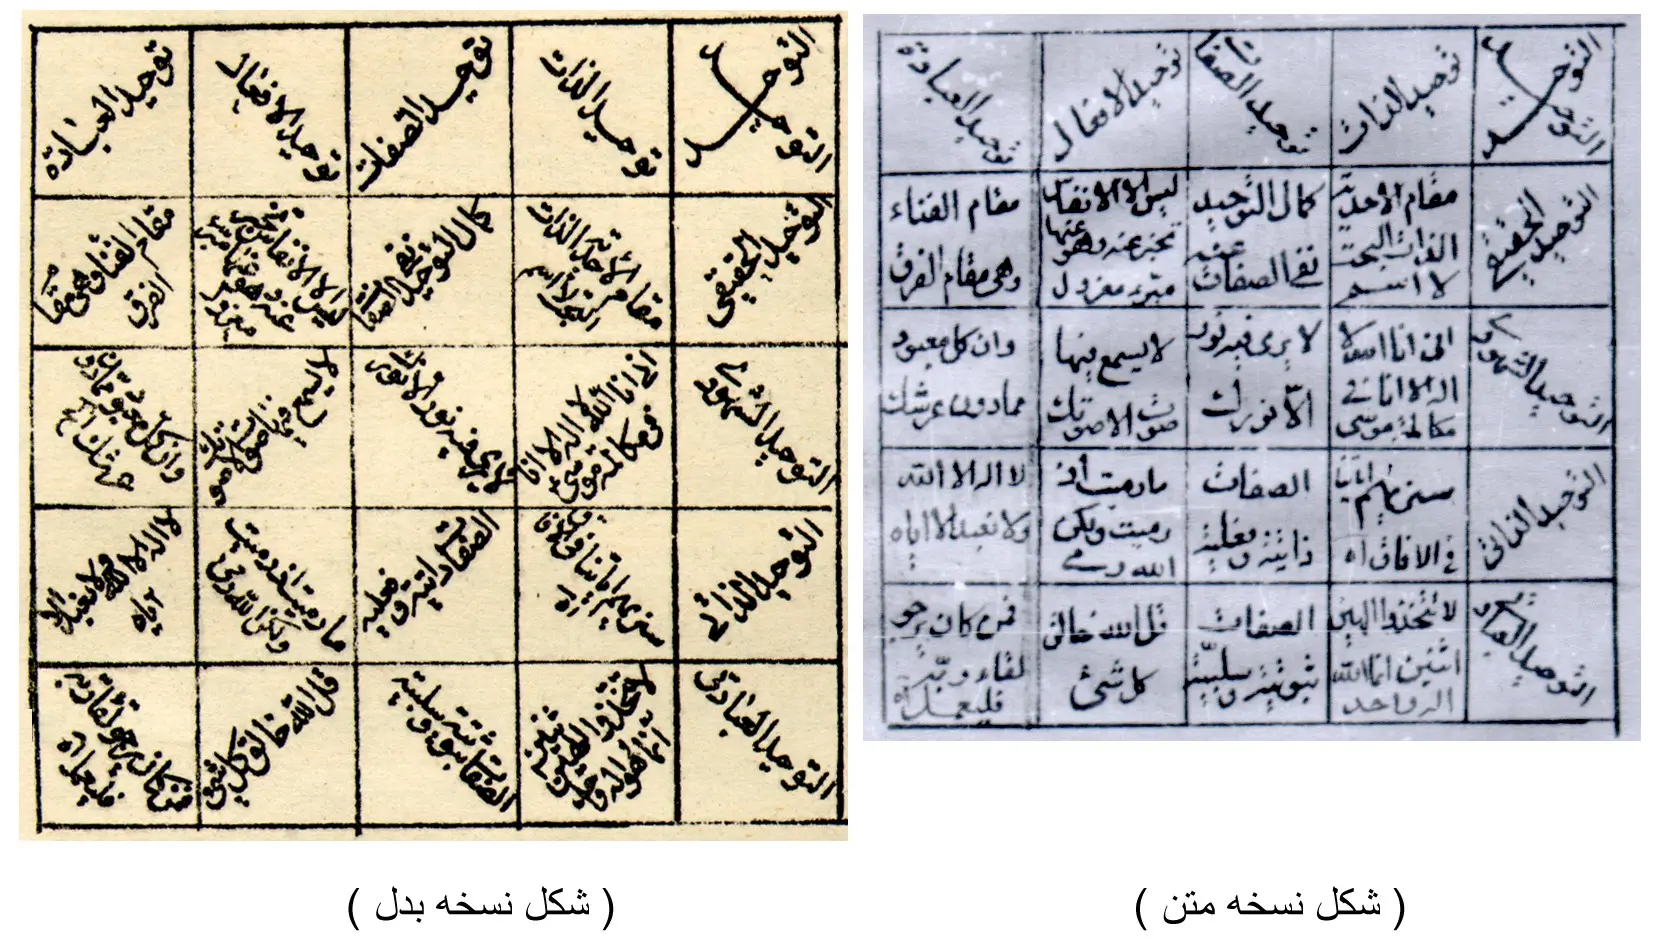 التوحيد
التوحيد
توحيد الذات
توحيد الصفات
توحيد الافعال
توحيد العبادة
التوحيد الحقيقي
مقام الاحدية
الذات البحت
لا اسم
كمال التوحيد
نفي الصفات عنه
ليس الا
تخبر عنه وهو عنها
معزول
مقام الفناء
وهي مقام الفرق
التوحيد الشهودي
اني انا الله لا
اله الا انا في
مكالمة موسى
لا يرى فيه نور
الّا نورك
لا يسمع فيها
صوت الا صوتك
وان كل معبود
مما دون عرشك
التوحيد الذاتي
سنريهم اياتنا
في الافاق اه
الصفات
ذاتية وفعلية
ما رميت اذ
رميت ولكن
الله رمى
لا اله الا الله
ولا نعبد الا اياه
التوحيد العبادتي
لا تتخذوا الهين
اثنين انما الله
اله واحد
الصفات
ثبوتية وسلبيّة
قل الله خالق
كل شئ
فمن كان يرجو
لقاء ربّه
فليعمل اه
( شكل نسخه متن )
التوحيد
التوحيد
توحيد الذات
توحيد الصفات
توحيد الافعال
توحيد العبادة
التوحيد الحقيقي
مقام الأحدية الذات
البحت لا اسم
كمال التوحيد نفي
الصفات
ليس الا
عنه وهو عنها
معزول
مقام الفناء وهي مقام
الفرق
التوحيد الشهودي
اني انا الله لا اله الا انا
في مكالمة موسى
لا يرى فيه نور الا نورك
لا يسمع فيها
صوت الا صوتك
وان كل معبود مما دون
عرشك
التوحيد الذاتي
سنريهم اياتنا في الافاق
اه
الصفات ذاتية و فعلية
ما رميت اذ رميت
ولكن الله رمى
لا اله الا الله ولا نعبد الا
اياه
التوحيد العبادتي
لا تتخذوا الهين اثنين
انما هو اله واحد
الصفات ثبوتية وسلبية
قل الله خالق كل شئ
فمن كان يرجو لقاء ربه
فليعمل اه
( شكل نسخه بدل )